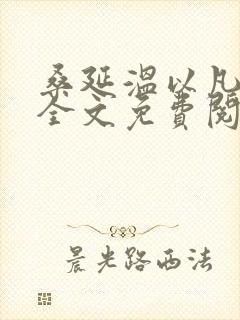 桑延温以凡
全文免費閱
晨光路西法